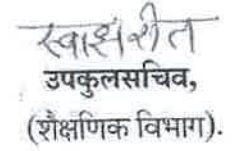 स्वाक्षरीत
उपकुलसचिव,
(शैक्षणिक विभाग).